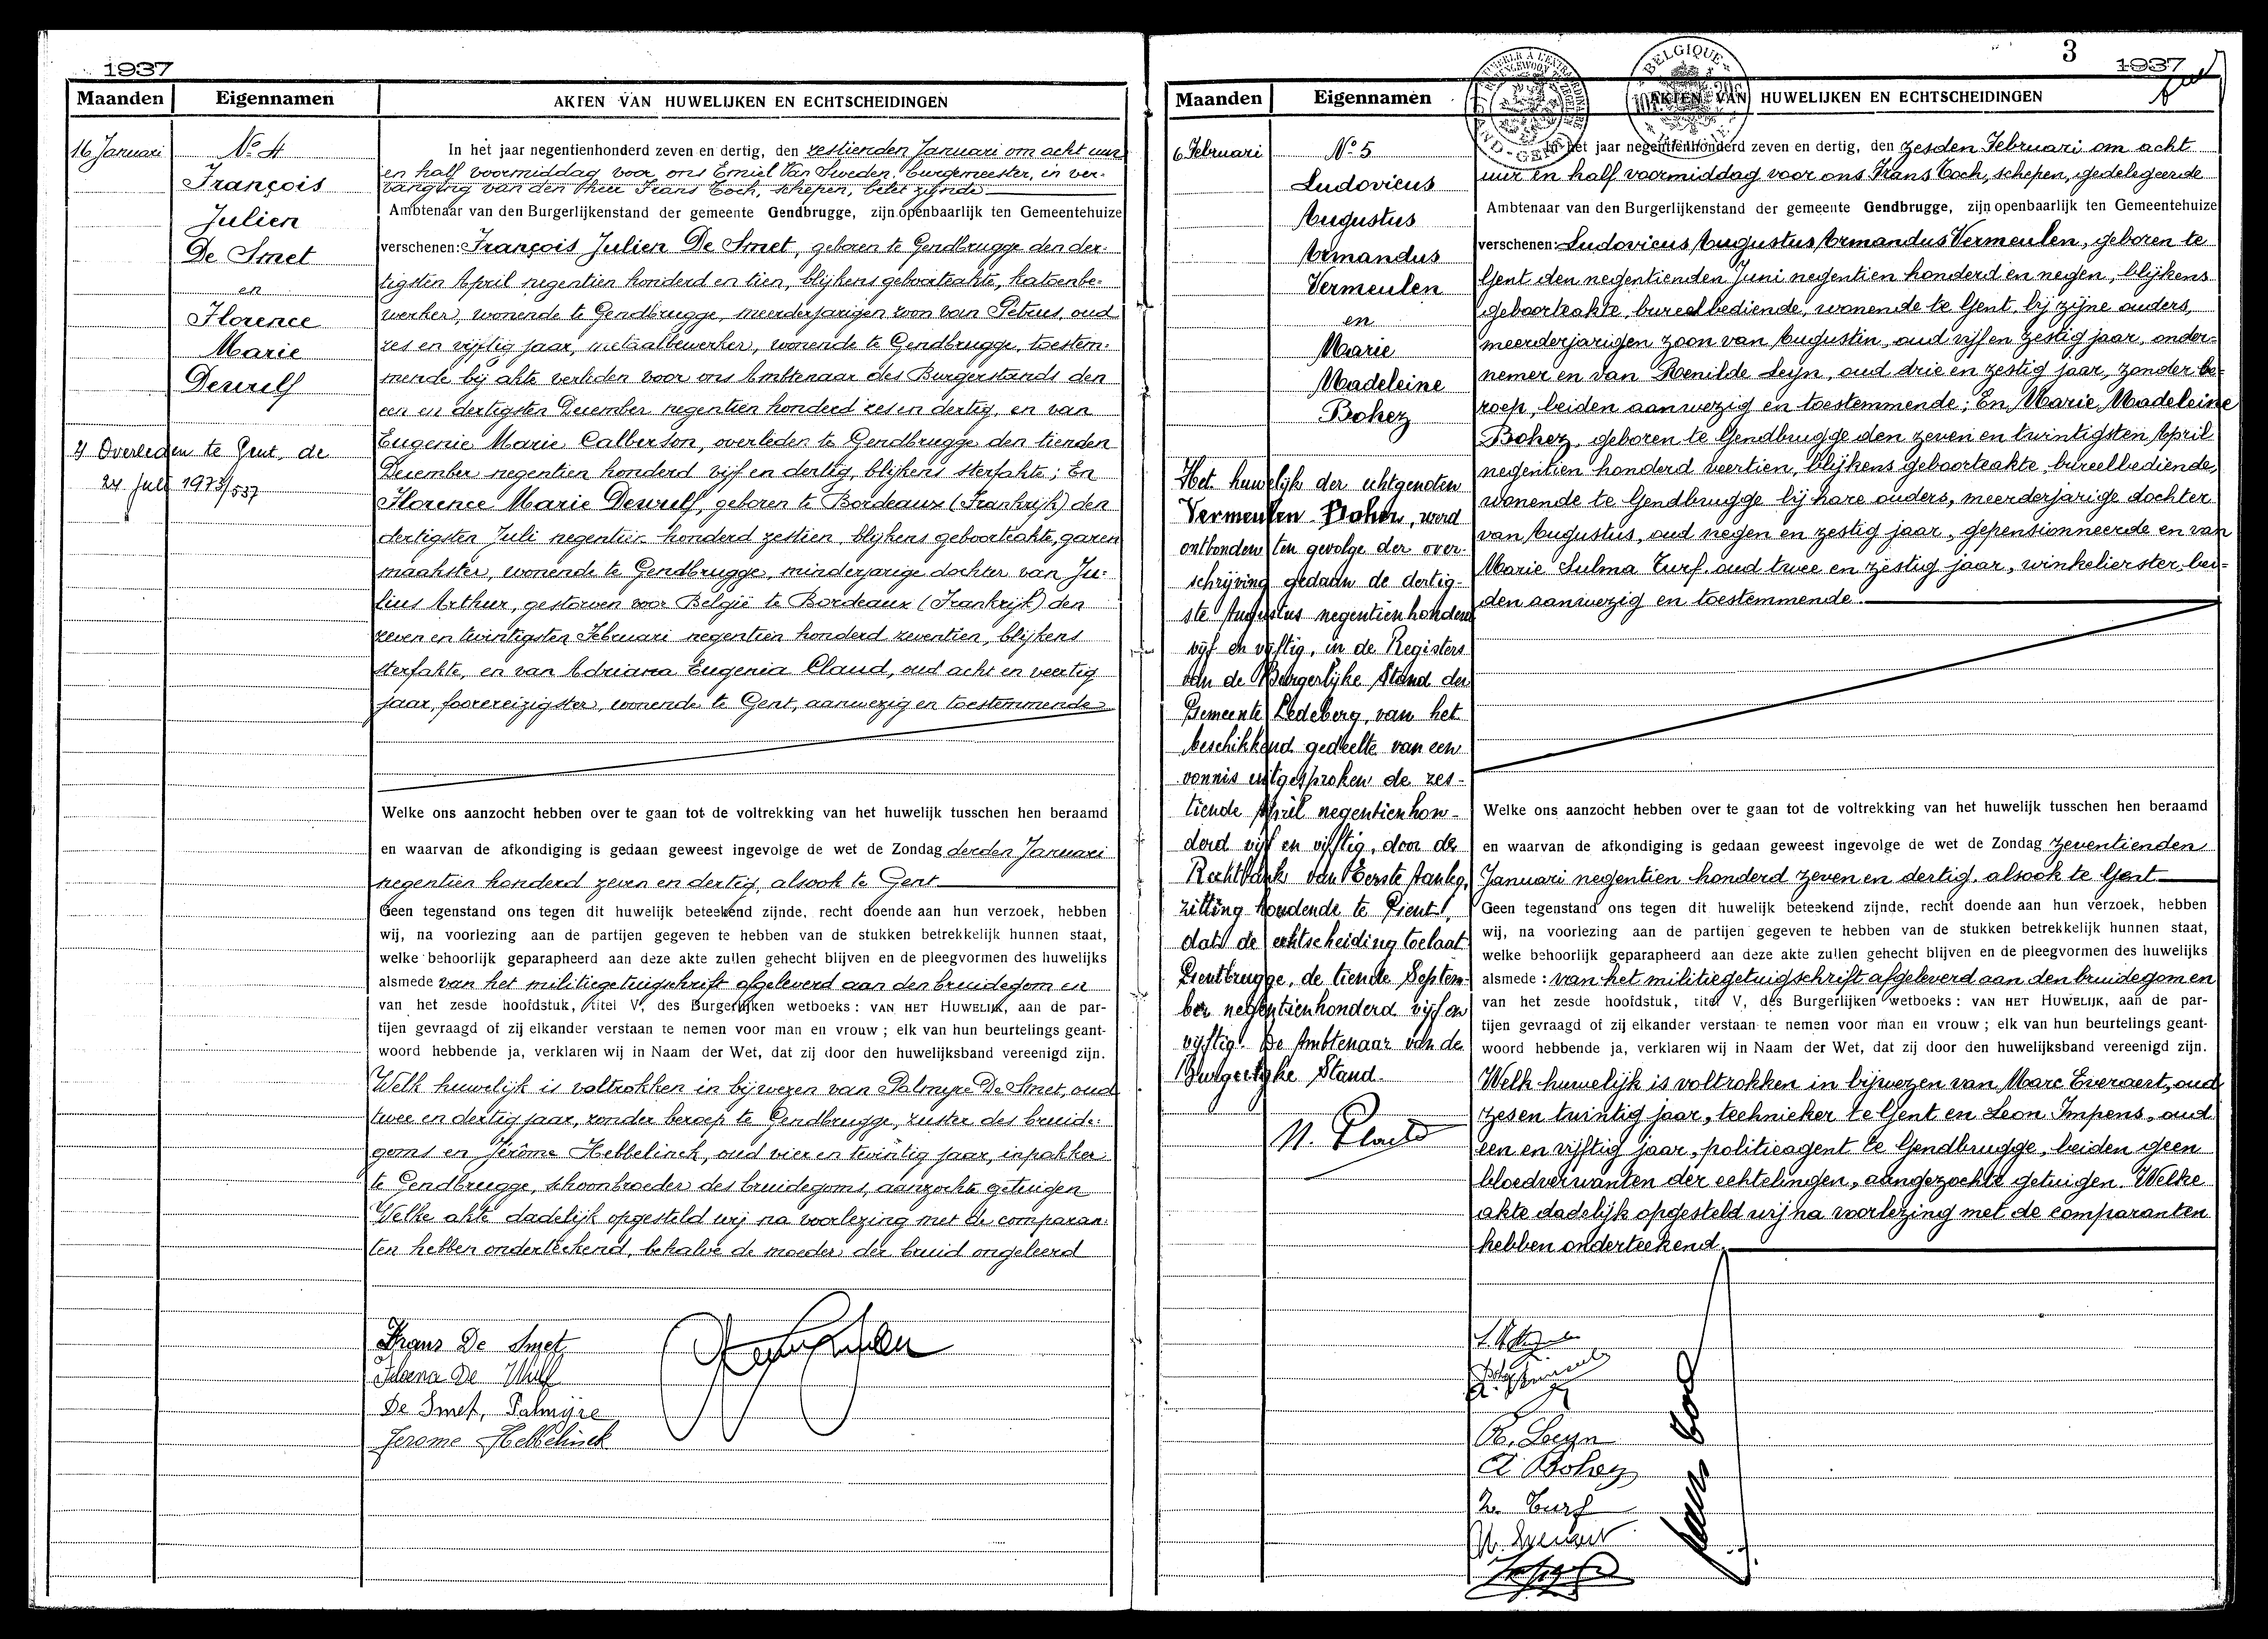 1937
Maanden Eigennamen AKTEN VAN HUWELIJKEN EN ECHTSCHEIDINGEN
16 Januari
No 4
François
Julien
De Smet
en
Florence
Marie
Dewulf
Overleden te Gent, de
24 juli 1973/537
In het jaar negentienhonderd zeven en dertig, den zestienden Januari om acht uur
en half voormiddag voor ons Emiel Van Sweden, burgemeester, in ver-
vanging van den heer Frans Coch, schepen, belet zijnde
Ambtenaar van den Burgerlijkenstand der gemeente Gendbrugge, zijn openbaarlijk ten Gemeentehuize
verschenen: François Julien De Smet, geboren te Gendbrugge den der-
tigsten April negentien honderd en tien, blijkens geboorteakte, katoenbe-
werker, wonende te Gendbrugge, meerderjarigen zoon van Petrus, oud
zes en vijftig jaar, metaalbewerker, wonende te Gendbrugge, toestem-
mende bij akte verleden voor ons Ambtenaar des Burgerstands den
een en dertigsten December negentien honderd zes en dertig, en van
Eugenie Marie Calberson, overleden te Gendbrugge den tienden
December negentien honderd vijf en dertig, blijkens sterfakte; En
Florence Marie Dewulf, geboren te Bordeaux (Frankrijk) den
dertigsten Juli negentien honderd zestien, blijkens geboorteakte, garen
maakster, wonende te Gendbrugge, minderjarige dochter van Ju-
lius Arthur, gestorven voor België te Bordeaux (Frankrijk) den
zeven en twintigsten Februari negentien honderd zeventien, blijkens
sterfakte, en van Adriana Eugenia Claud, oud acht en veertig
jaar, foorereizigster, wonende te Gent, aanwezig en toestemmende
Welke ons aanzocht hebben over te gaan tot de voltrekking van het huwelijk tusschen hen beraamd
en waarvan de afkondiging is gedaan geweest ingevolge de wet de Zondag derden Januari
negentien honderd zeven en dertig, alsook te Gent
Geen tegenstand ons tegen dit huwelijk beteekend zijnde, recht doende aan hun verzoek, hebben
wij, na voorlezing aan de partijen gegeven te hebben van de stukken betrekkelijk hunnen staat,
welke behoorlijk geparapheerd aan deze akte zullen gehecht blijven en de pleegvormen des huwelijks
alsmede van het militiegetuigschrift afgeleverd aan den bruidegom en
van het zesde hoofdstuk, titel V, des Burgerlijken wetboeks: VAN HET HUWELIJK, aan de par-
tijen gevraagd of zij elkander verstaan te nemen voor man en vrouw; elk van hun beurtelings geant-
woord hebbende ja, verklaren wij in Naam der Wet, dat zij door den huwelijksband vereenigd zijn.
Welk huwelijk is voltrokken in bijwezen van Palmyre De Smet, oud
twee en dertig jaar, zonder beroep te Gendbrugge, zuster des bruide-
goms en Jérôme Hebbelinck, oud vier en twintig jaar, inpakker
te Gendbrugge, schoonbroeder des bruidegoms, aanzochte getuigen
Welke akte dadelijk opgesteld wij na voorlezing met de comparan-
ten hebben onderteekend, behalve de moeder der bruid ongeleerd
Frans De Smet
De Wulf
De Smet, Palmyre
Jerome Hebbelinck
3
1937
Maanden Eigennamen AKTEN VAN HUWELIJKEN EN ECHTSCHEIDINGEN
BELGIQUE
6 Februari
No 5
Ludovicus
Augustus
Armandus
Vermeulen
en
Marie
Madeleine
Bohez
Het huwelijk der echtgenoten
Vermeulen Bohez, werd
ontbonden ten gevolge der over-
schrijving gedaan de dertig-
ste Augustus negentienhonderd
vijf en vijftig, in de Registers
van de Burgerlijke Stand der
Gemeente Ledeberg, van het
beschikkend gedeelte van een
vonnis uitgesproken de zes-
tiende April negentienhon-
derd vijf en vijftig, door de
Rechtbank van Eerste Aanleg,
zitting houdende te Gent,
dat de echtscheiding toelaat
Gentbrugge, de tiende Septem-
ber negentienhonderd vijf en
vijftig. De Ambtenaar van de
Burgerlijke Stand.
In het jaar negentienhonderd zeven en dertig, den zesden Februari om acht
uur en half voormiddag voor ons Frans Coch, schepen, gedelegeerde
Ambtenaar van den Burgerlijkenstand der gemeente Gendbrugge, zijn openbaarlijk ten Gemeentehuize
verschenen: Ludovicus Augustus Armandus Vermeulen, geboren te
Gent den negentienden Juni negentien honderd en negen, blijkens
geboorteakte, bureelbediende, wonende te Gent, bij zijne ouders,
meerderjarigen zoon van Augustin, oud vijf en zestig jaar, onder-
nemer en van Renilde Leyn, oud drie en zestig jaar, zonder be-
roep, beiden aanwezig en toestemmende; En Marie Madeleine
Bohez, geboren te Gendbrugge den zeven en twintigsten April
negentien honderd veertien, blijkens geboorteakte, bureelbediende,
wonende te Gendbrugge bij hare ouders, meerderjarige dochter
van Augustus, oud negen en zestig jaar, gepensionneerde en van
Marie Sulma Turf oud twee en zestig jaar, winkelierster, bei-
den aanwezig en toestemmende.
Welke ons aanzocht hebben over te gaan tot de voltrekking van het huwelijk tusschen hen beraamd
en waarvan de afkondiging is gedaan geweest ingevolge de wet de Zondag zeventienden
Januari negentien honderd zeven en dertig, alsook te Gent
Geen tegenstand ons tegen dit huwelijk beteekend zijnde, recht doende aan hun verzoek, hebben
wij, na voorlezing aan de partijen gegeven te hebben van de stukken betrekkelijk hunnen staat,
welke behoorlijk geparapheerd aan deze akte zullen gehecht blijven en de pleegvormen des huwelijks
alsmede: van het militiegetuigschrift afgeleverd aan den bruidegom en
van het zesde hoofdstuk, titel V, des Burgerlijken wetboeks: VAN HET HUWELIJK, aan de par-
tijen gevraagd of zij elkander verstaan te nemen voor man en vrouw; elk van hun beurtelings geant-
woord hebbende ja, verklaren wij in Naam der Wet, dat zij door den huwelijksband vereenigd zijn.
Welk huwelijk is voltrokken in bijwezen van Marc Everaert, oud
zes en twintig jaar, technieker te Gent en Leon Impens, oud
een en vijftig jaar, politieagent te Gendbrugge, beiden geen
bloedverwanten der echtelingen, aangezochte getuigen. Welke
akte dadelijk opgesteld wij na voorlezing met de comparanten
hebben onderteekend.
R. Leyn
A Bohez
Turf
M. Everaert